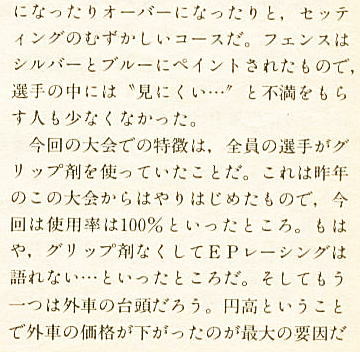 になったりオーバーになったりと，セッテ
ィングのむずかしいコースだ。フェンスは
シルバーとブルーにペイントされたもので，
選手の中には〝見にくい…〞と不満をもら
す人も少なくなかった。
　今回の大会での特徴は，全員の選手がグ
リップ剤を使っていたことだ。これは昨年
のこの大会からはやりはじめたもので，今
回は使用率は100％といったところ。もは
や，グリップ剤なくしてＥＰレーシングは
語れない…といったところだ。そしてもう
一つは外車の台頭だろう。円高ということ
で外車の価格が下がったのが最大の要因だ